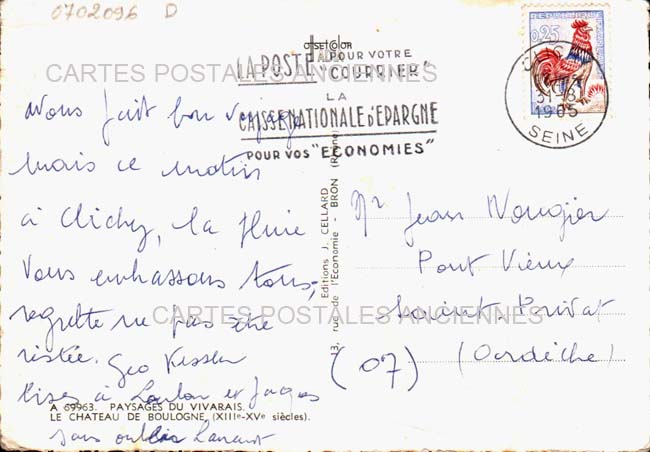 0702096 D
OFFSET COLOR
LA POSTE POUR VOTRE
"COURRIER"
LA
CAISSE NATIONALE d'EPARGNE
POUR VOS "ECONOMIES"
0,25
1965
SEINE
CARTES POSTALES ANCIENNES
avons fait bon voyage
mais ce matin
à Clichy, la pluie
Vous embrassons tous,
regrette ne pas être
restée. Geo
bises à Loulou et Jacques
sans
A 69963. PAYSAGES DU VIVARAIS.
LE CHATEAU DE BOULOGNE (XIIIe-XVe siècles).
Editions J. CELLARD
13, rue de l'Economie - BRON (Rhône)
Mr Jean Nougier
Pont Vieux
Saint. Privat
(07) (Ardèche)
CARTES POSTALES ANCIENNES